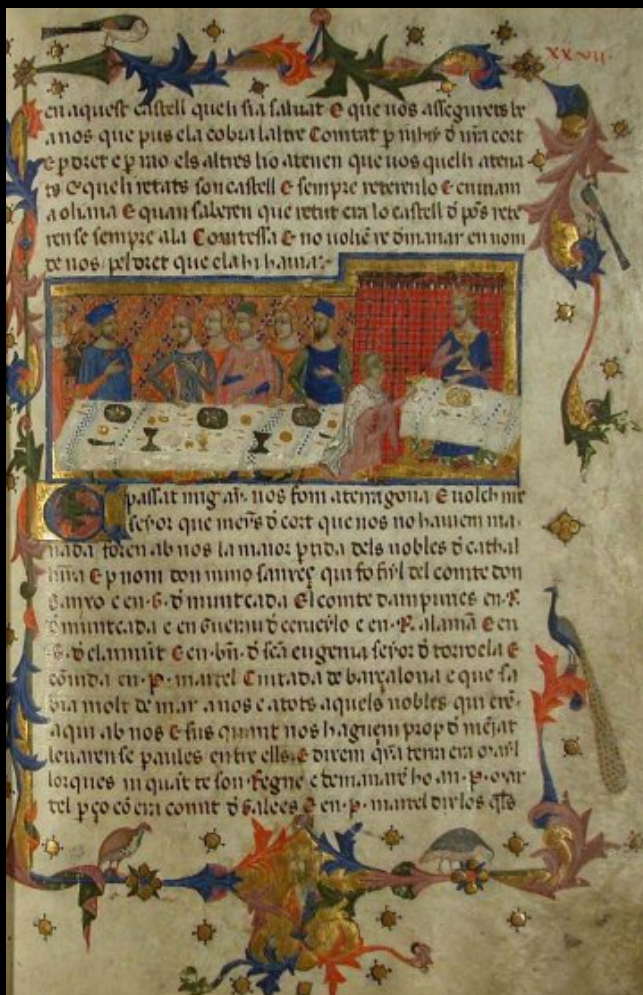 xx·vii·
en aquest castell queli sia saluat E que uos assegurets be
anos que pus ela cobra laltre Comtat p iuhii d nra cort
E p dret e p rao els altres ho atenen que uos quelh atena
ts E queli retats son castell E sempre reterenlo E enuiam
a oliana E quan saberen que retut era lo castell d pos rete
ren se sempre ala Comtessa E no uolie re dmanar en nom
de nos pel dret que ela hi hauia·
E passat mig an· nos fom aterragona E uolch nre
seyor que meys d cort que nos no hauiem ma
nada foren ab nos la maior ptida dels nobles d cathal
unya E p nom don nuno sanxes qui fo fiyl del comte don
Sanxo e en ·G· d muntcada El comte dampuries en ·R·
d muntcada e en Guerau d cerueylo e en ·R· alama E en
·G· d claramunt E en bn· d sca eugenia seyor d torroela E
couida en ·P· martel Ciutada de barcalona e que sa
bia molt de mar a nos e a tots aquels nobles qui eren
aqui ab nos E sus quant nos haguem prop d meiat
leuaren se paules entre ells· E dixem qna terra era mayl
lorques ni quat te son Regne e demanare ho an ·P· mar
tel p ço co era comit d Galees E en ·P· martel dix los qls